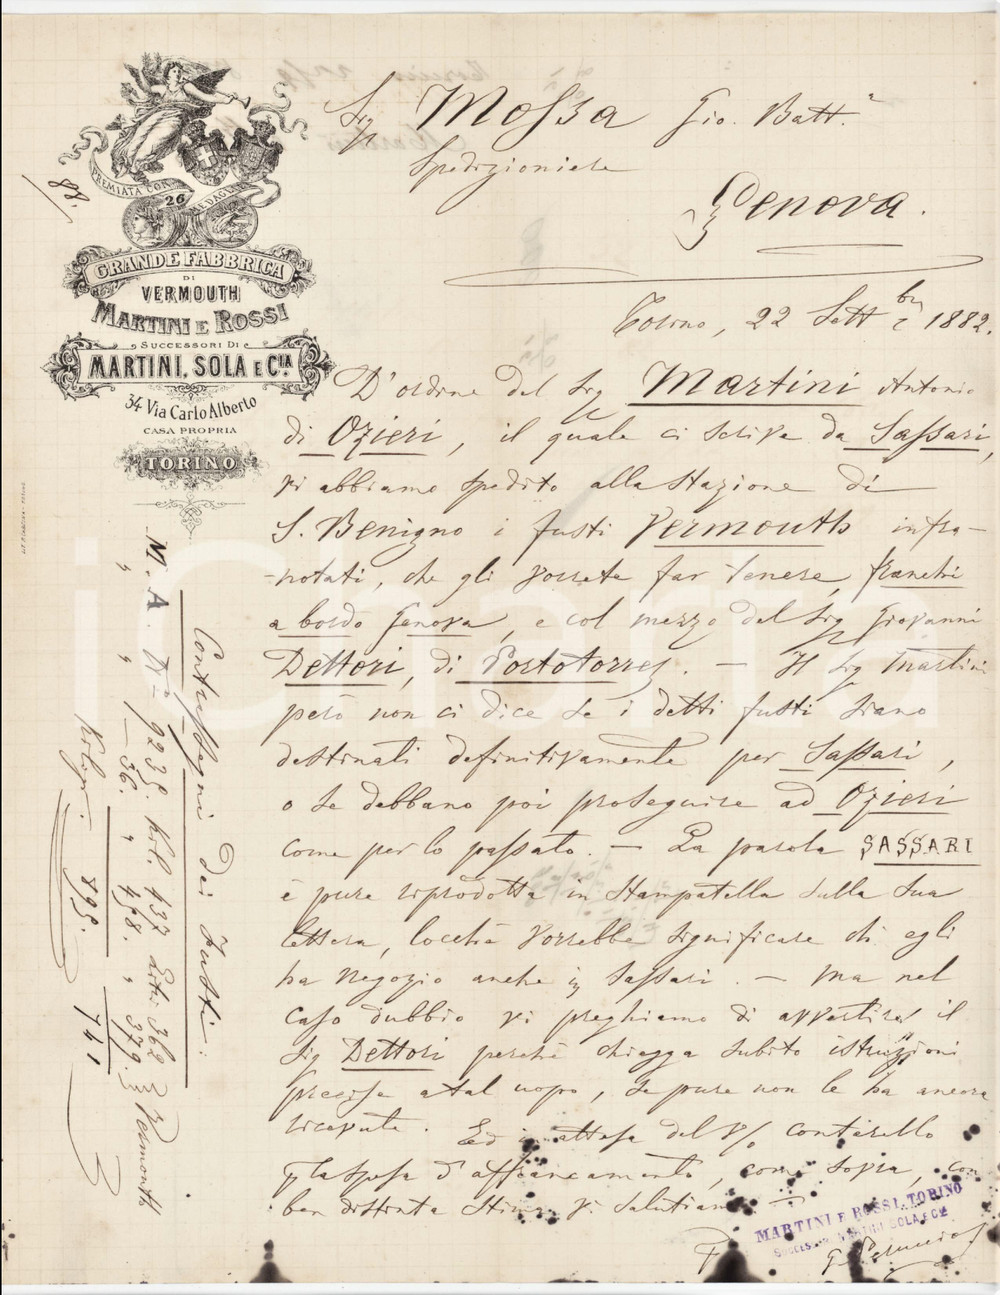 PREMIATA CON
26
MEDAGLIE
GRANDE FABBRICA
DI
VERMOUTH
MARTINI E ROSSI
SUCCESSORI DI
MARTINI, SOLA E CIA.
34 Via Carlo Alberto
CASA PROPRIA
TORINO
Sig Mossa Gio. Batt.a
Spedizioniere
Genova.
Torino, 22 Settbre 1882.
D'ordine del Sig Martini Antonio
di Ozieri, il quale ci scrive da Sassari,
vi abbiamo spedito alla Stazione di
S. Benigno i fusti Vermouth infra-
-notati, che gli vorrete far tenere, franchi
a bordo Genova, e col mezzo del Sig Giovanni
Dettori, di Portotorres. — Il Sig Martini
però non ci dice se i detti fusti siano
destinati definitivamente per Sassari,
o se debbano poi proseguire ad Ozieri
come per lo passato. — La parola SASSARI
è pure riprodotta in Stampatella sulla sua
lettera, locchè vorrebbe significare ch'egli
ha negozio anche in Sassari. — Ma nel
caso dubbio vi preghiamo di avvertire il
Sig Dettori perchè chiegga subito istruzioni
precise a tal uopo, se pure non le ha ancora
ricevute. Ed in attesa del V/ conterello
p la spesa d'affrancamento, come sopra, con
ben distinta Stima Vi Salutiamo —
MARTINI E ROSSI, TORINO
SUCCESSORI MARTINI SOLA E CIA
Contrassegni dei Fusti:
M. A. N° 9235. Kil. 437 Litri 362 Vermouth
" " — 36. " 458. " 379.
Kilogr. 895. 741
iCharta